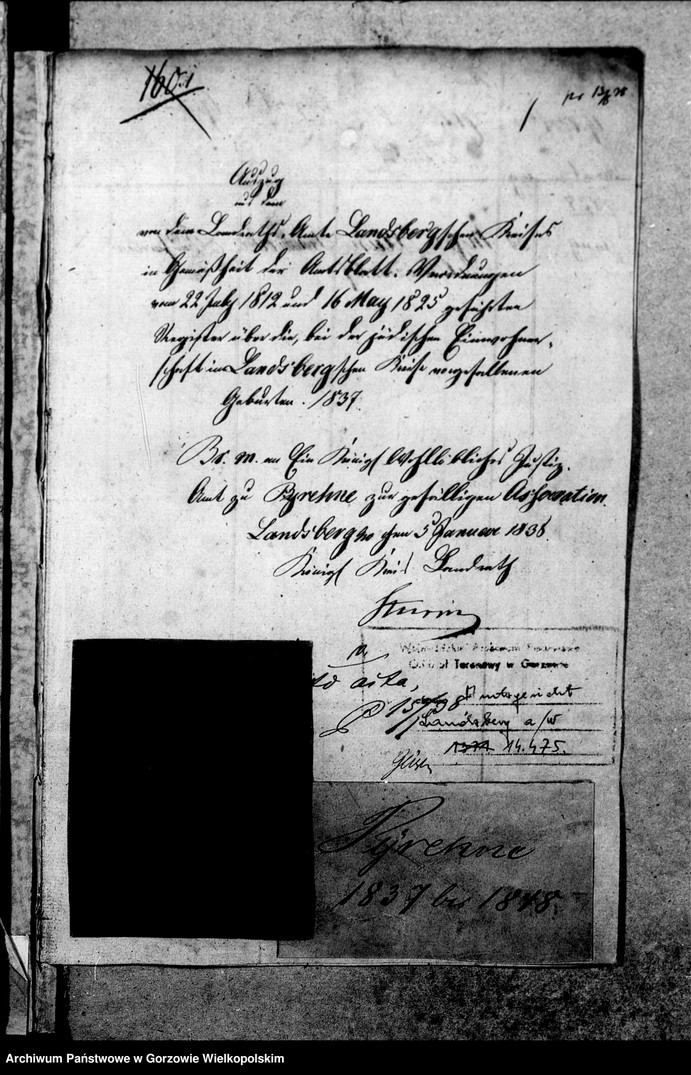 160.1
Auszug
aus dem
von dem Landraths-Amte Landsbergschen Kreises
in Gemäßheit der Amtsblatt-Verordnungen
vom 22 July 1812 und 16 May 1825 geführten
Register über die, bei der jüdischen Einwohner-
schaft im Landsbergschen Kreise vorgefallenen
Geburten. 1837.
Br. m. an Ein Königl Wohllöbliches Justiz-
Amt zu Pyrehne zur gefälligen Asservation.
Landsberg den 5 Januar 1838
Königl Kreis Landrath
ad acta,
P 15/1 38
Oddział Terenowy w Gorzowie
Amtsgericht
Landsberg a/W
1371 14.475.
Pyrehne
1837 bis 1848.
Archiwum Państwowe w Gorzowie Wielkopolskim